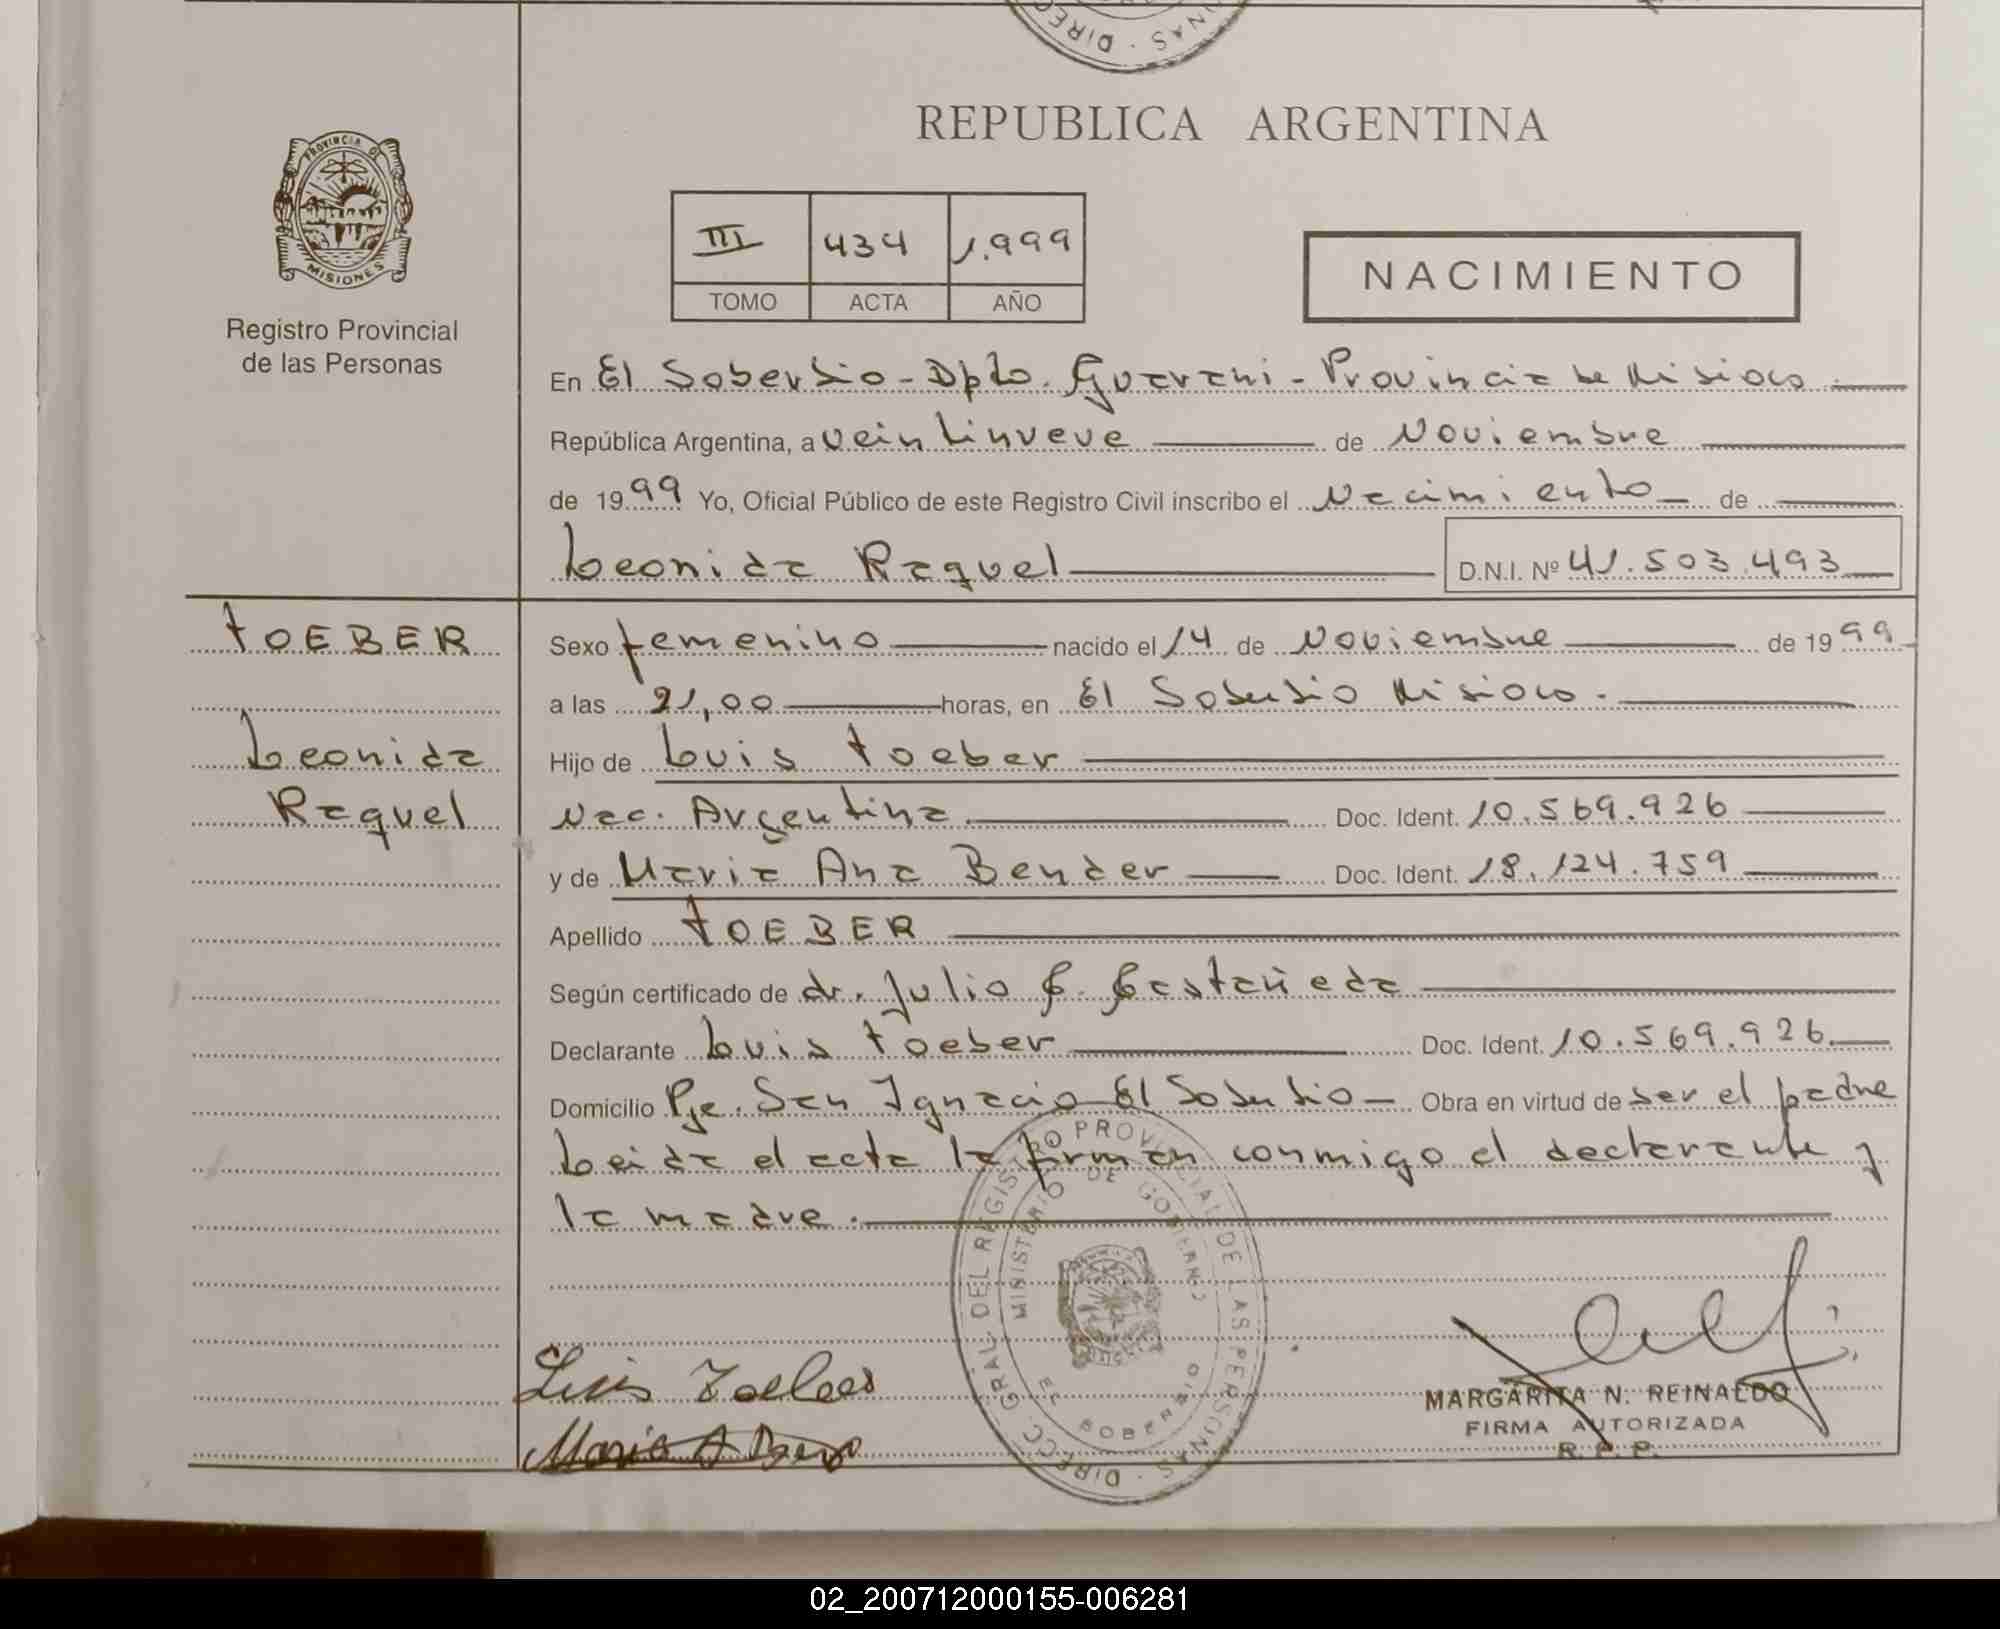 REPUBLICA ARGENTINA
PROVINCIA DE
MISIONES
Registro Provincial
de las Personas
III 434 1.999
TOMO ACTA AÑO
NACIMIENTO
En El Soberbio - Dpto. Guarani - Provincia de Misiones.
República Argentina, a veintinueve de Noviembre
de 1999 Yo, Oficial Público de este Registro Civil inscribo el Nacimiento de
Leonida Raquel D.N.I. Nº 41.503.493
TOEBER
Leonida
Raquel
Sexo femenino nacido el 14 de Noviembre de 1999
a las 21,00 horas, en El Soberbio Misiones.
Hijo de Luis Toeber
Nac. Argentina. Doc. Ident. 10.569.926
y de Maria Ana Bender Doc. Ident. 18.124.759
Apellido TOEBER
Según certificado de dr. Julio C. Castañeda
Declarante Luis Toeber Doc. Ident. 10.569.926.
Domicilio Pje. San Ignacio El Soberbio - Obra en virtud de ser el padre
Leida el acta la firman conmigo el declarante y
la madre.
DIRECC. GRAL. DEL REGISTRO PROVINCIAL DE LAS PERSONAS
MINISTERIO DE GOBIERNO
EL SOBERBIO
Luis
Maria A
MARGARITA N. REINALDO
FIRMA AUTORIZADA
R. P. P.
02_200712000155-006281